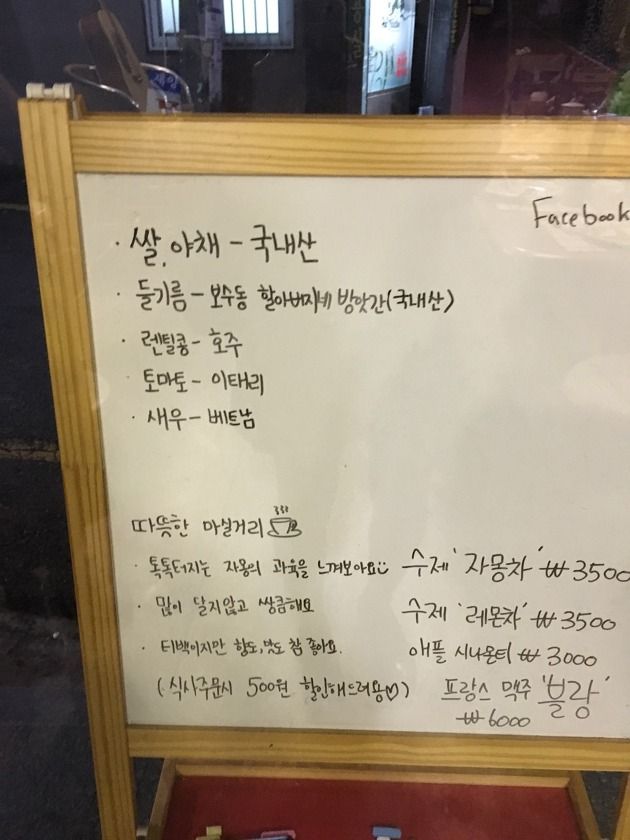 Facebook
· 쌀, 야채 - 국내산
· 들기름 - 보수동 할아버지네 방앗간(국내산)
· 렌틸콩 - 호주
· 토마토 - 이태리
· 새우 - 베트남
따뜻한 마실거리
· 톡톡터지는 자몽의 과육을 느껴보아요 수제 '자몽차' ₩3500
· 많이 달지않고 쌍큼해요 수제 '레몬차' ₩3500
· 티백이지만 향도, 맛도 참 좋아요. 애플 시나몬티 ₩3000
(식사주문시 500원 할인해드려용♡) 프랑스 맥주 '블랑'
₩6000